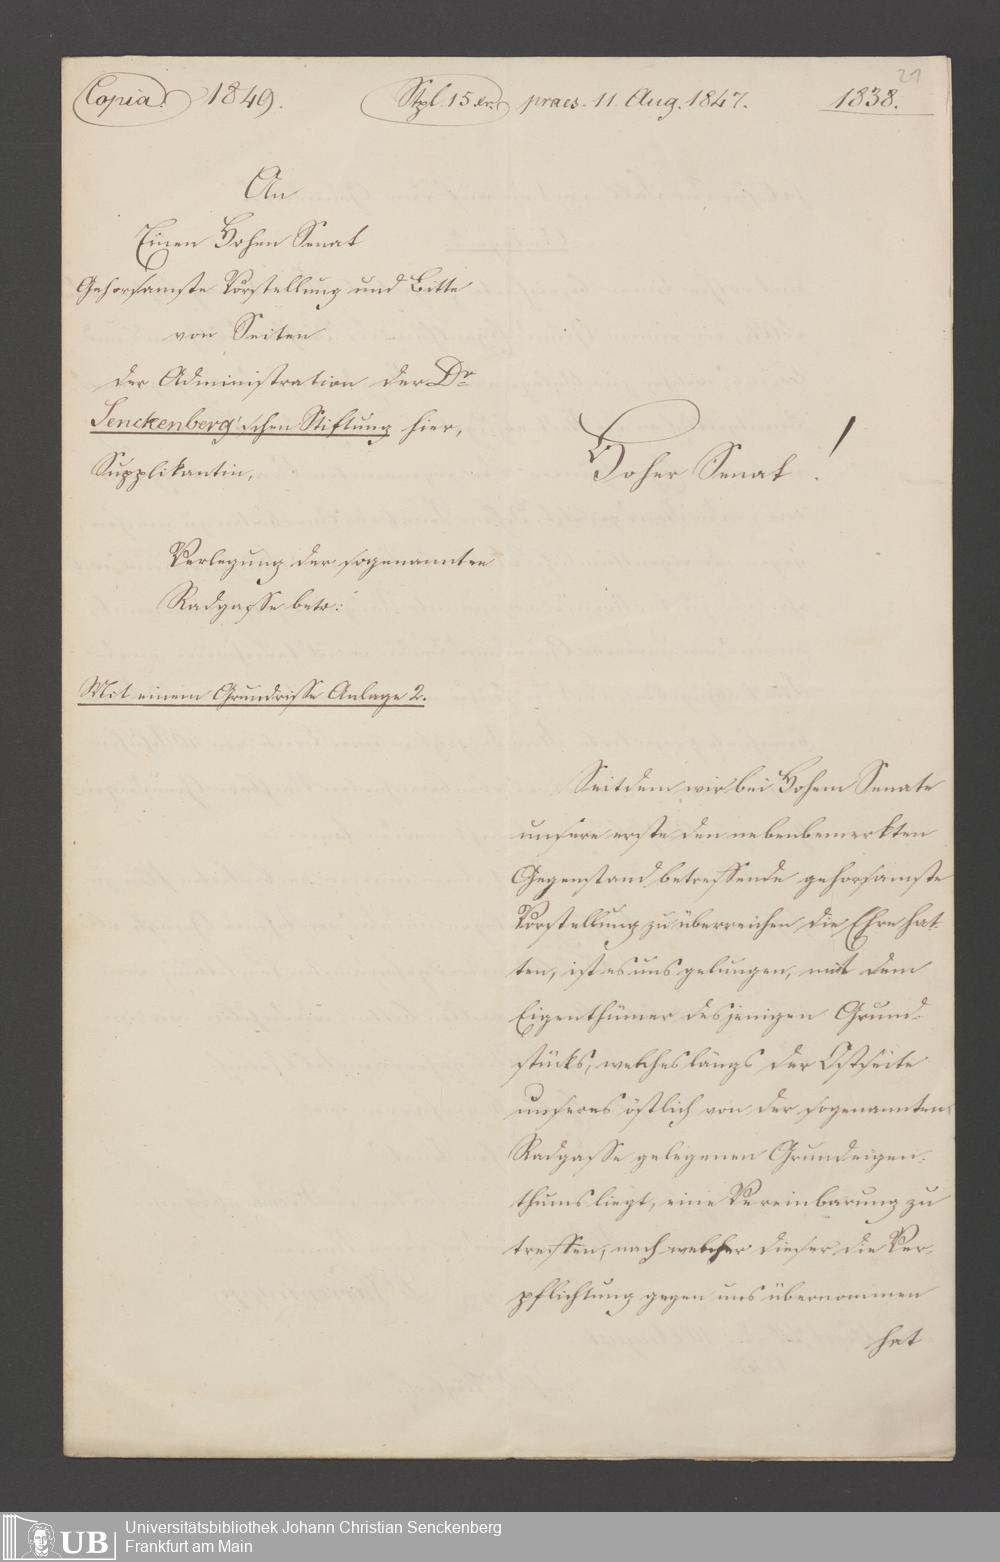 21
Copia. 1849. Stpl. 15 xr. praes. 11. Aug. 1847. 1838.
An
Einen Hohen Senat
Gehorsamste Vorstellung und Bitte
von Seiten
der Administration der Dr
Senckenberg'schen Stiftung hier,
Supplikantin,
Verlegung der sogenannten
Radgasse betr:
Mit einem Grundrisse Anlage 2.
Hoher Senat!
Seitdem wir bei Hohem Senate
unsere erste den nebenbemerkten
Gegenstand betreffende gehorsamste
Vorstellung zu überreichen die Ehre hat-
ten, ist es uns gelungen, mit dem
Eigenthümer desjenigen Grund-
stücks, welches längs der Ostseite
unseres östlich von der sogenannten
Radgasse gelegenen Grundeigen-
thums liegt, eine Vereinbarung zu
treffen, nach welcher dieser die Ver-
pflichtung gegen uns übernommen
hat
UB
Universitätsbibliothek Johann Christian Senckenberg
Frankfurt am Main